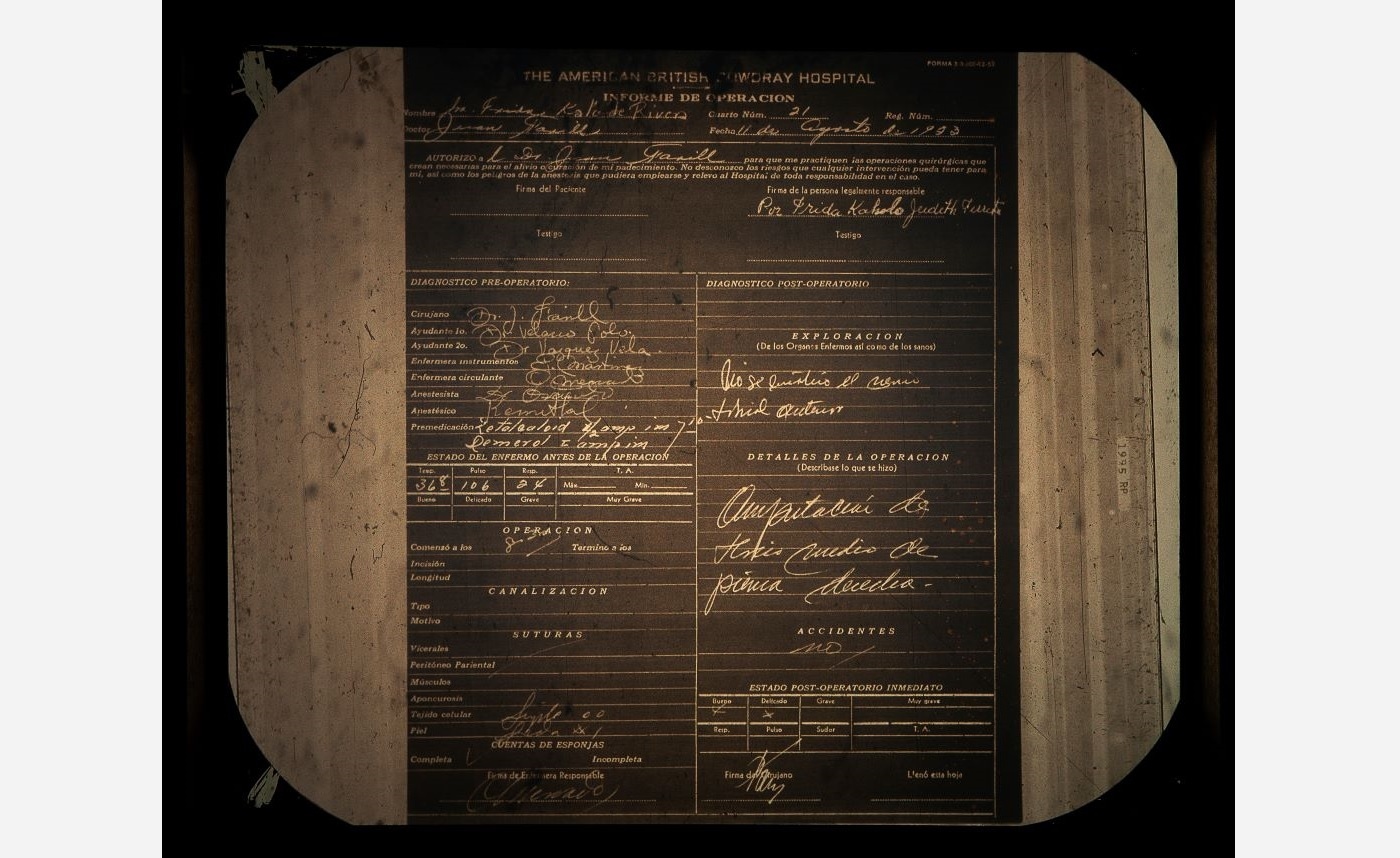 THE AMERICAN BRITISH COWDRAY HOSPITAL
INFORME DE OPERACION
Nombre Sra. Frida Kalo de Rivera Cuarto Núm. 21 Reg. Núm.
Doctor Juan Farill Fecha 11 de Agosto de 1953
AUTORIZO a l Dr Juan Farill para que me practiquen las operaciones quirúrgicas que
crean necesarias para el alivio o curación de mi padecimiento. No desconozco los riesgos que cualquier intervención pueda tener para
mí, así como los peligros de la anestesia que pudiera emplearse y relevo al Hospital de toda responsabilidad en el caso.
Firma del Paciente
Firma de la persona legalmente responsable
Por Frida Kahalo Judith Ferreto
Testigo
Testigo
DIAGNOSTICO PRE-OPERATORIO:
Cirujano Dr. J. Farill
Ayudante 1o. Dr Velasco Polo.
Ayudante 2o. Dr Vazquez Vela.
Enfermera instrumentos
Enfermera circulante
Anestesista Dr
Anestésico Kemithal
Premedicación amp im
Demerol 1 amp im
ESTADO DEL ENFERMO ANTES DE LA OPERACIÓN
Temp. Pulso Resp. T. A.
36 8 106 24 Máx. Min.
Bueno Delicado Grave Muy Grave
OPERACION
Comenzó a los Termino a los
Incisión
Longitud
CANALIZACION
Tipo
Motivo
SUTURAS
Vicerales
Peritóneo Pariental
Músculos
Aponcurosis
Tejido celular Simple 00
Piel
CUENTAS DE ESPONJAS
Completa Incompleta
Firma de Enfermera Responsable
DIAGNOSTICO POST-OPERATORIO
EXPLORACION
(De los Organos Enfermos así como de los sanos)
No se el nervio
tibial anterior
DETALLES DE LA OPERACION
(Descríbase lo que se hizo)
Amputación de
tercio medio de
pierna derecha-
ACCIDENTES
no
ESTADO POST-OPERATORIO INMEDIATO
Bueno Delicado Grave Muy grave
x
Resp. Pulso Sudor T. A.
Firma del Cirujano Llenó esta hoja
1995 RP